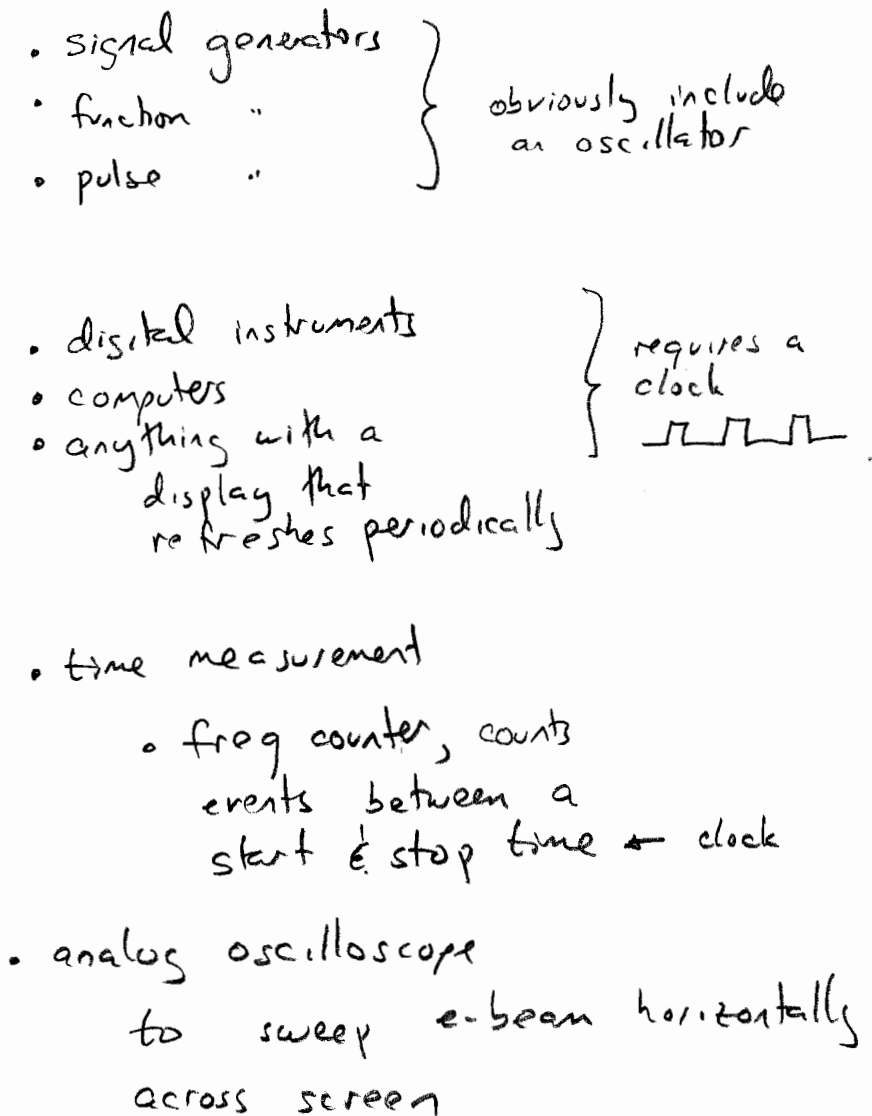 • signal generators
• function "
• pulse "
obviously include
an oscillator
• digital instruments
• computers
• anything with a
display that
refreshes periodically
requires a
clock
• time measurement
• freq counter, counts
events between a
start & stop time ← clock
• analog oscilloscope
to sweep e-beam horizontally
across screen